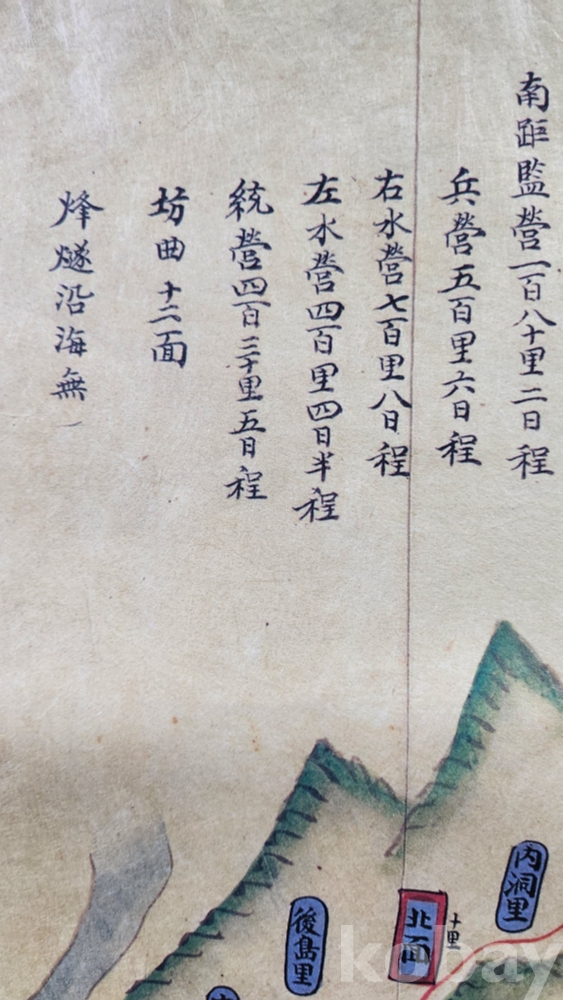 南距監營一百八十里二日程
兵營五百里六日程
右水營七百里八日程
左水營四百里四日半程
統營四百三十里五日程
坊曲十二面
烽燧沿海無
內洞里
十里
北面
後島里
kobay